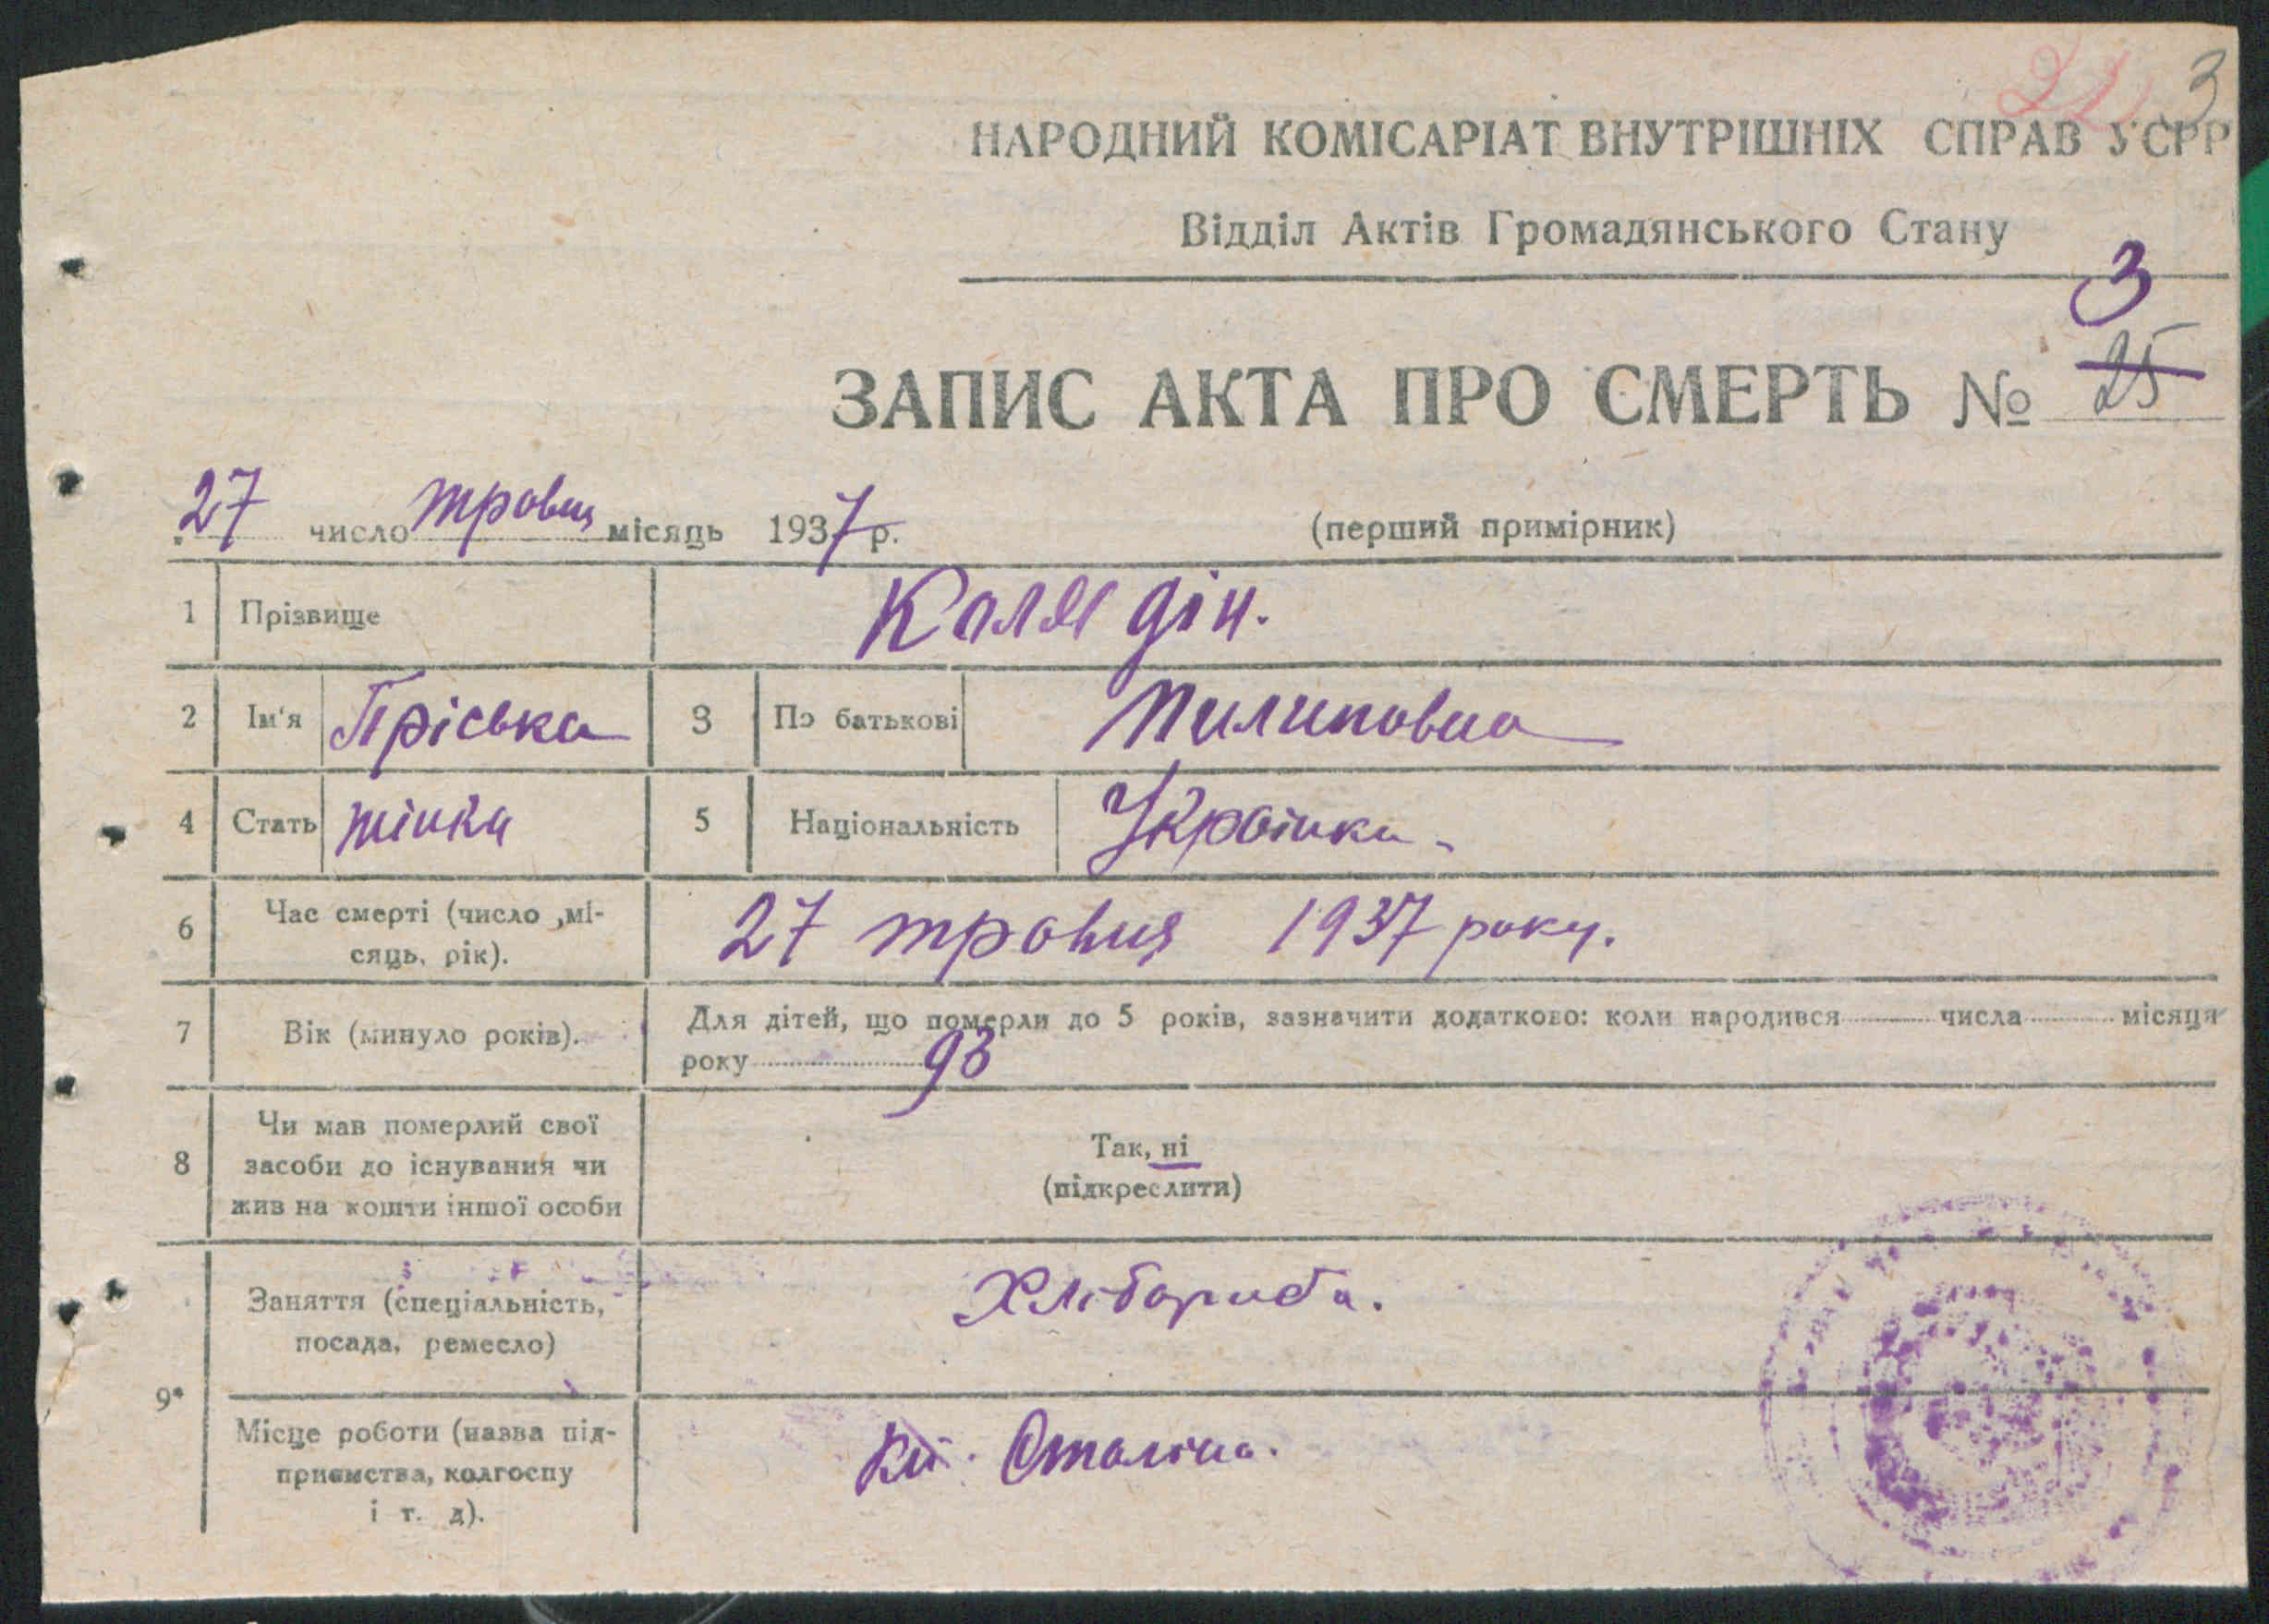 22 3
НАРОДНИЙ КОМІСАРІАТ ВНУТРІШНІХ СПРАВ УСРР
Відділ Актів Громадянського Стану
3
ЗАПИС АКТА ПРО СМЕРТЬ № 25
27 число травня місяць 1937 р. (перший примірник)
1 Прізвище Калядін.
2 Ім'я Пріська 3 По батькові Пилиповна
4 Стать жінка 5 Національність Українка
6 Час смерті (число ,мі-
сяць, рік). 27 травня 1937 року.
7 Вік (минуло років). Для дітей, що померли до 5 років, зазначити додатково: коли народився числа місяця
року 93
8 Чи мав померлий свої
засоби до існування чи
жив на кошти іншої особи
Так, ні
(підкреслити)
9 Заняття (спеціальність,
посада, ремесло) Хлібороба.
Місце роботи (назва під-
приємства, колгоспу
і т. д).
Сталіна.